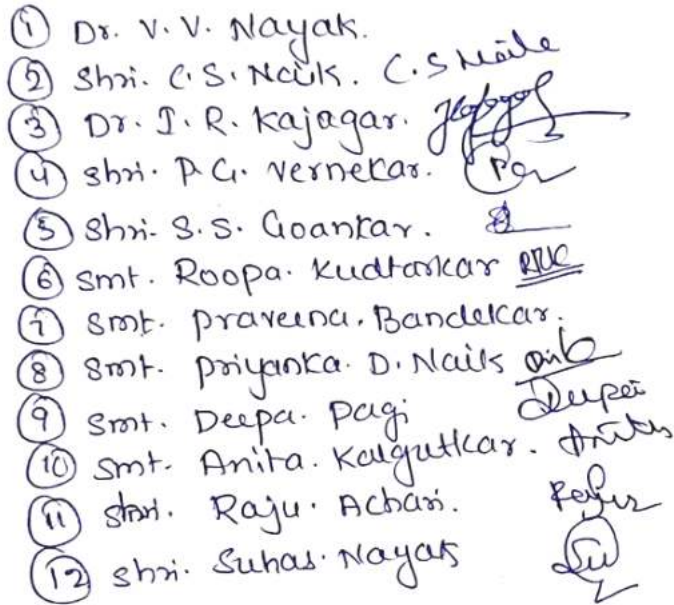 1 Dr. V. V. Nayak.
2 Shri. C. S. Naik. C. S Naik
3 Dr. I. R. Kajagar.
4 shri. P. G. Vernekar.
5 Shri. S. S. Goankar.
6 Smt. Roopa. Kudtarkar RRK
7 Smt. Praveena. Bandekar.
8 Smt. Priyanka. D. Naik
9 Smt. Deepa. Pagi Deepa
10 Smt. Anita. Kalgutkar. Anita
11 Shri. Raju. Achari.
12 Shri. Suhas. Nayak